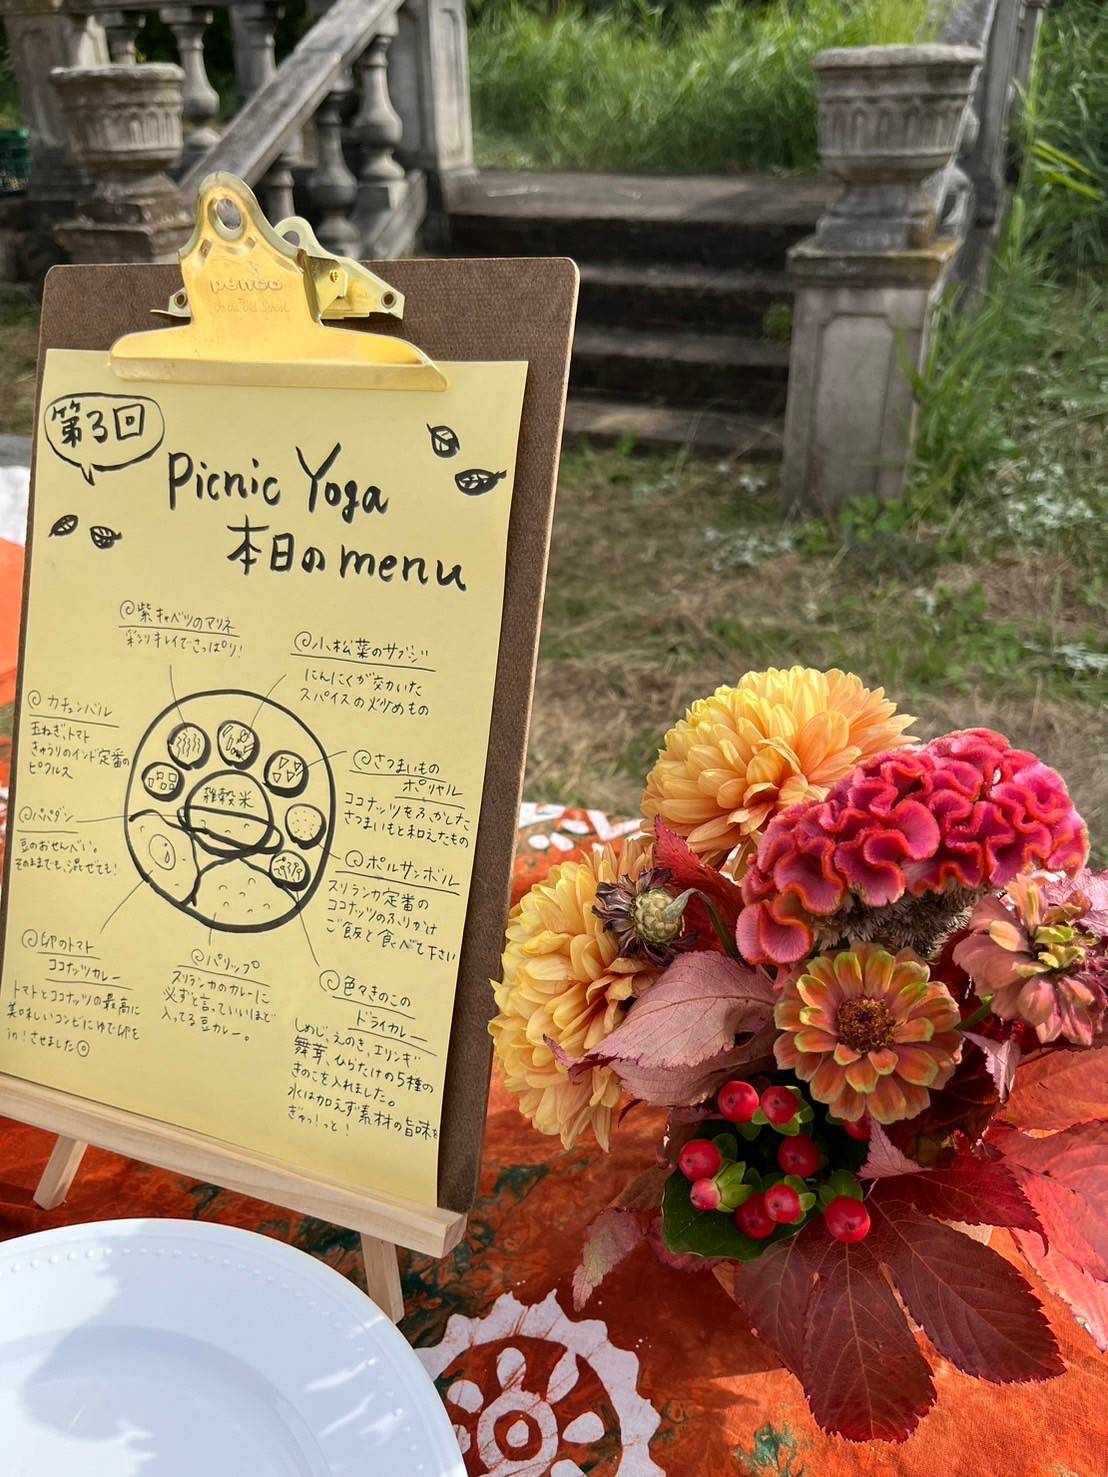 penco
第3回
Picnic Yoga
本日のmenu
紫キャベツのマリネ
彩りキレイでさっぱり!
小松菜のサブジ
にんにくが効いた
スパイスの炒めもの
カチュンバル
玉ねぎ、トマト
きゅうりのインド定番の
ピクルス
さつまいもの
ポリヤル
ココナッツをふかした
さつまいもと和えたもの
雑穀米
パパダン
豆のおせんべい。
そのままでも、混ぜても!
ポルサンボル
スリランカ定番の
ココナッツのふりかけ
ご飯と食べて下さい
卵のトマト
ココナッツカレー
トマトとココナッツの最高に
美味しいコンビにゆで卵を
in!させました
パリップ
スリランカのカレーに
必ずと言っていいほど
入ってる豆カレー。
色々きのこの
ドライカレー
しめじ、えのき、エリンギ
舞茸、ひらたけの5種の
きのこを入れました。
水は加えず素材の旨味を
ぎゅっ!っと!